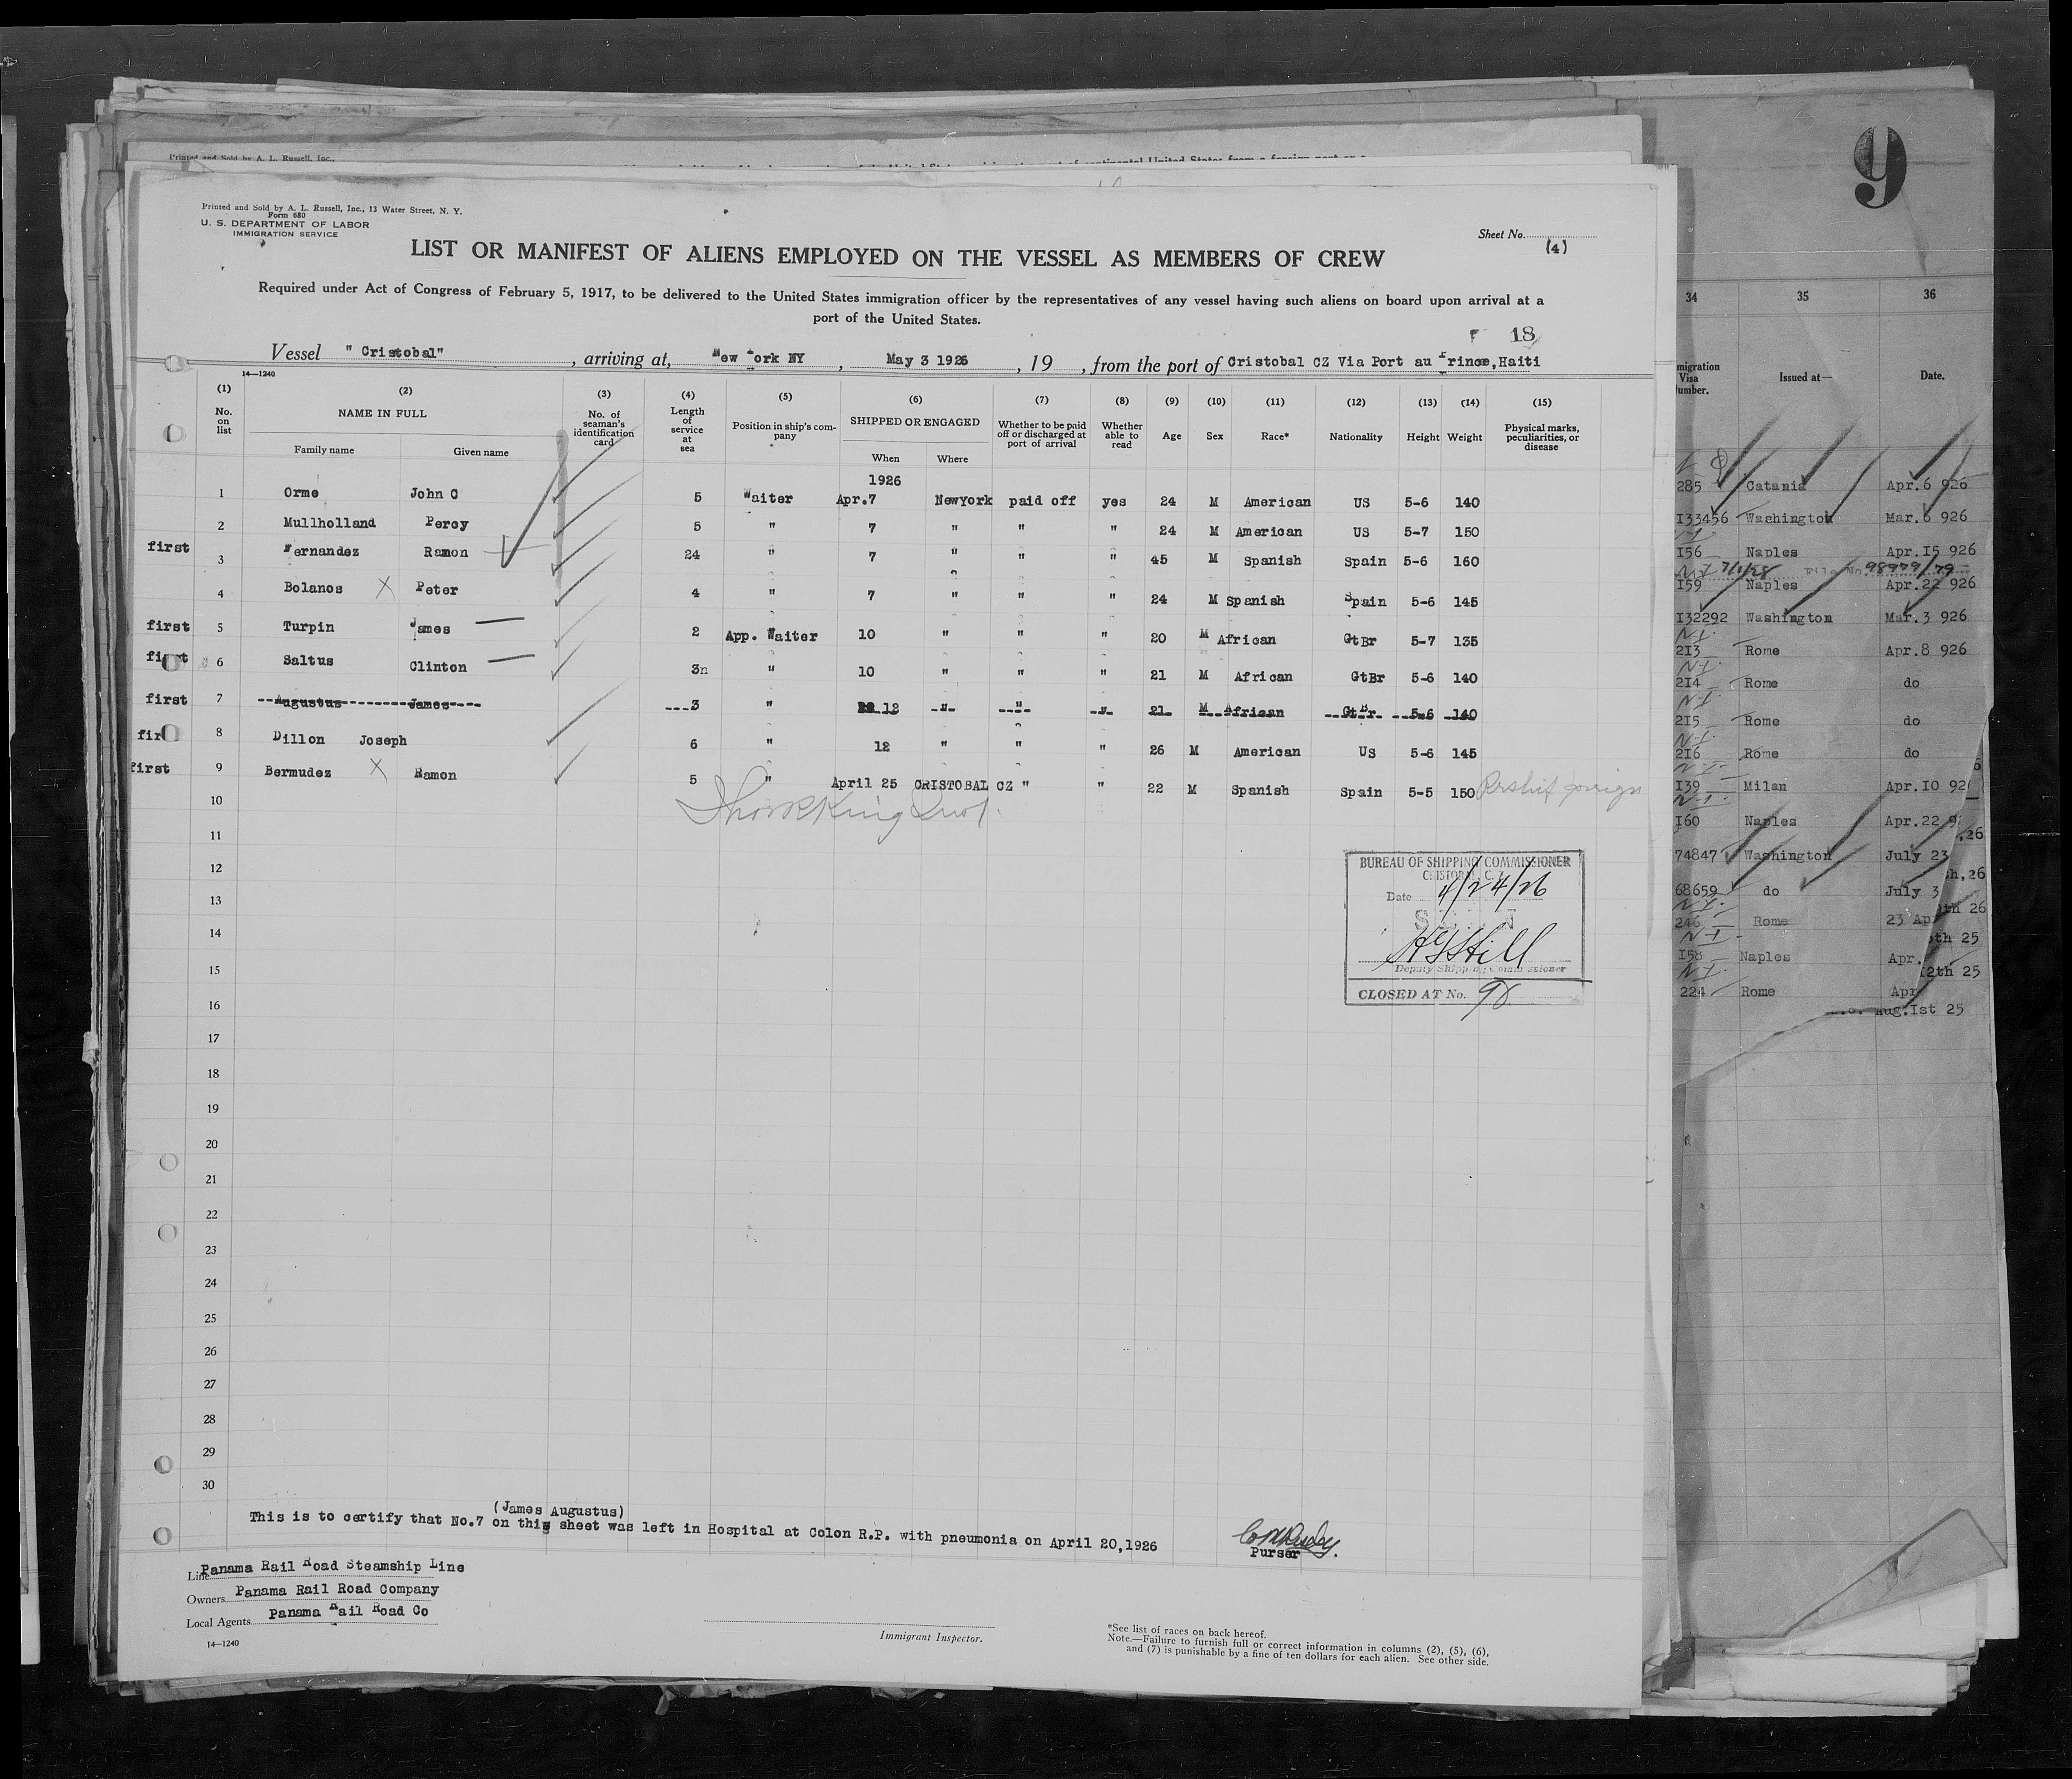 Printed and Sold by A. L. Russell, Inc.,
9
Printed and Sold by A. L. Russell, Inc., 13 Water Street, N. Y.
Form 680
U. S. DEPARTMENT OF LABOR
IMMIGRATION SERVICE
Sheet No. (4)
LIST OR MANIFEST OF ALIENS EMPLOYED ON THE VESSEL AS MEMBERS OF CREW
Required under Act of Congress of February 5, 1917, to be delivered to the United States immigration officer by the representatives of any vessel having such aliens on board upon arrival at a
port of the United States.
18
Vessel " Cristobal" , arriving at, New York NY , May 3 1926 , 19 , from the port of Cristobal CZ Via Port au Prince,Haiti
14—1240
(1) (2) (3) (4) (5) (6) (7) (8) (9) (10) (11) (12) (13) (14) (15)
No. on list NAME IN FULL No. of seaman's identification card Length of service at sea Position in ship's company SHIPPED OR ENGAGED Whether to be paid off or discharged at port of arrival Whether able to read Age Sex Race* Nationality Height Weight Physical marks, peculiarities, or disease
Family name Given name When Where
1926
1 Orme John C 5 Waiter Apr.7 NewYork paid off yes 24 M American US 5-6 140
2 Mullholland Percy 5 " 7 " " " 24 M American US 5-7 150
first 3 Fernandez Ramon 24 " 7 " " " 45 M Spanish Spain 5-6 160
4 Bolanos X Peter 4 " 7 " " " 24 M Spanish Spain 5-6 145
first 5 Turpin James 2 App. Waiter 10 " " " 20 M African GtBr 5-7 135
first 6 Saltus Clinton 3n " 10 " " " 21 M African GtBr 5-6 140
first 7 Augustus James 3 " 12 " " " 21 M African GtBr 5-6 140
fir 8 Dillon Joseph 6 " 12 " " " 26 M American US 5-6 145
first 9 Bermudez X Ramon 5 " April 25 CRISTOBAL CZ " " 22 M Spanish Spain 5-5 150 Reship foreign
10
11
12
13
14
15
16
17
18
19
20
21
22
23
24
25
26
27
28
29
30
BUREAU OF SHIPPING COMMISSIONER
CRISTOBAL, C.
Date 4/24/26
SEEN
Deputy Shipping Commissioner
CLOSED AT No. 98
(James Augustus)
This is to certify that No.7 on this sheet was left in Hospital at Colon R.P. with pneumonia on April 20,1926
Purser
Line Panama Rail Road Steamship Line
Owners Panama Rail Road Company
Local Agents Panama Rail Road Co
14—1240
Immigrant Inspector.
*See list of races on back hereof.
Note.—Failure to furnish full or correct information in columns (2), (5), (6),
and (7) is punishable by a fine of ten dollars for each alien. See other side.
34 35 36
migration Visa umber. Issued at— Date.
285 Catania Apr.6 926
I33456 Washington Mar.6 926
I56 Naples Apr.I5 926
7/1/28 File No. 98979/79
I59 Naples Apr.22 926
I32292 Washington Mar.3 926
N-I-
2I3 Rome Apr.8 926
N-I-
2I4 Rome do
N-I-
2I5 Rome do
N-I-
2I6 Rome do
N-I-
I39 Milan Apr.IO 92
N-I-
I60 Naples Apr.22 9
,26
74847 Washington July 23
h,26
68659 do July 3
N-I-
th 26
246 Rome 23 Ap
N-I-
th 25
I58 Naples Apr.
N-I-
2th 25
224 Rome Apr
Aug.Ist 25